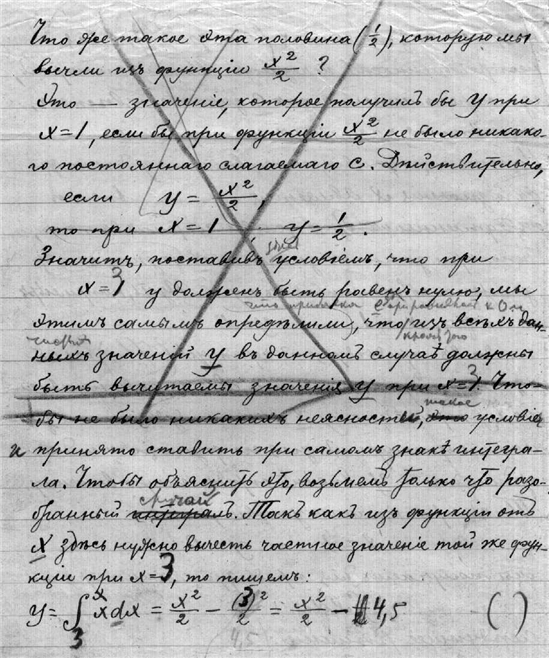 Что же такое эта половина (1/2), которую мы
вычли изъ функціи x²/2 ?
Это — значеніе, которое получилъ бы y при
x=1, если бы при функціи x²/2 не было никако-
го постояннаго слагаемаго C. Дѣйствительно,
если y = x²/2,
то при x=1 y=1/2.
Значитъ, поставивъ условіемъ, что при
x=3 y долженъ быть равенъ нулю, мы
этимъ самымъ опредѣлили, что изъ всѣхъ дан-
ныхъ значеній y въ данномъ случаѣ должны
быть вычитаемы значенія y при x=3. Что-
бы не было никакихъ неясностей, такое условіе
и принято ставить при самомъ знакѣ интегра-
ла. Чтобы объяснить это, возьмемъ только что разо-
случай
бранный. Такъ какъ изъ функціи отъ
x здѣсь нужно вычесть частное значеніе той же фун-
кціи при x=3, то пишемъ:
y = ∫₃ˣ xdx = x²/2 - (3)²/2 = x²/2 - 4,5 ( )